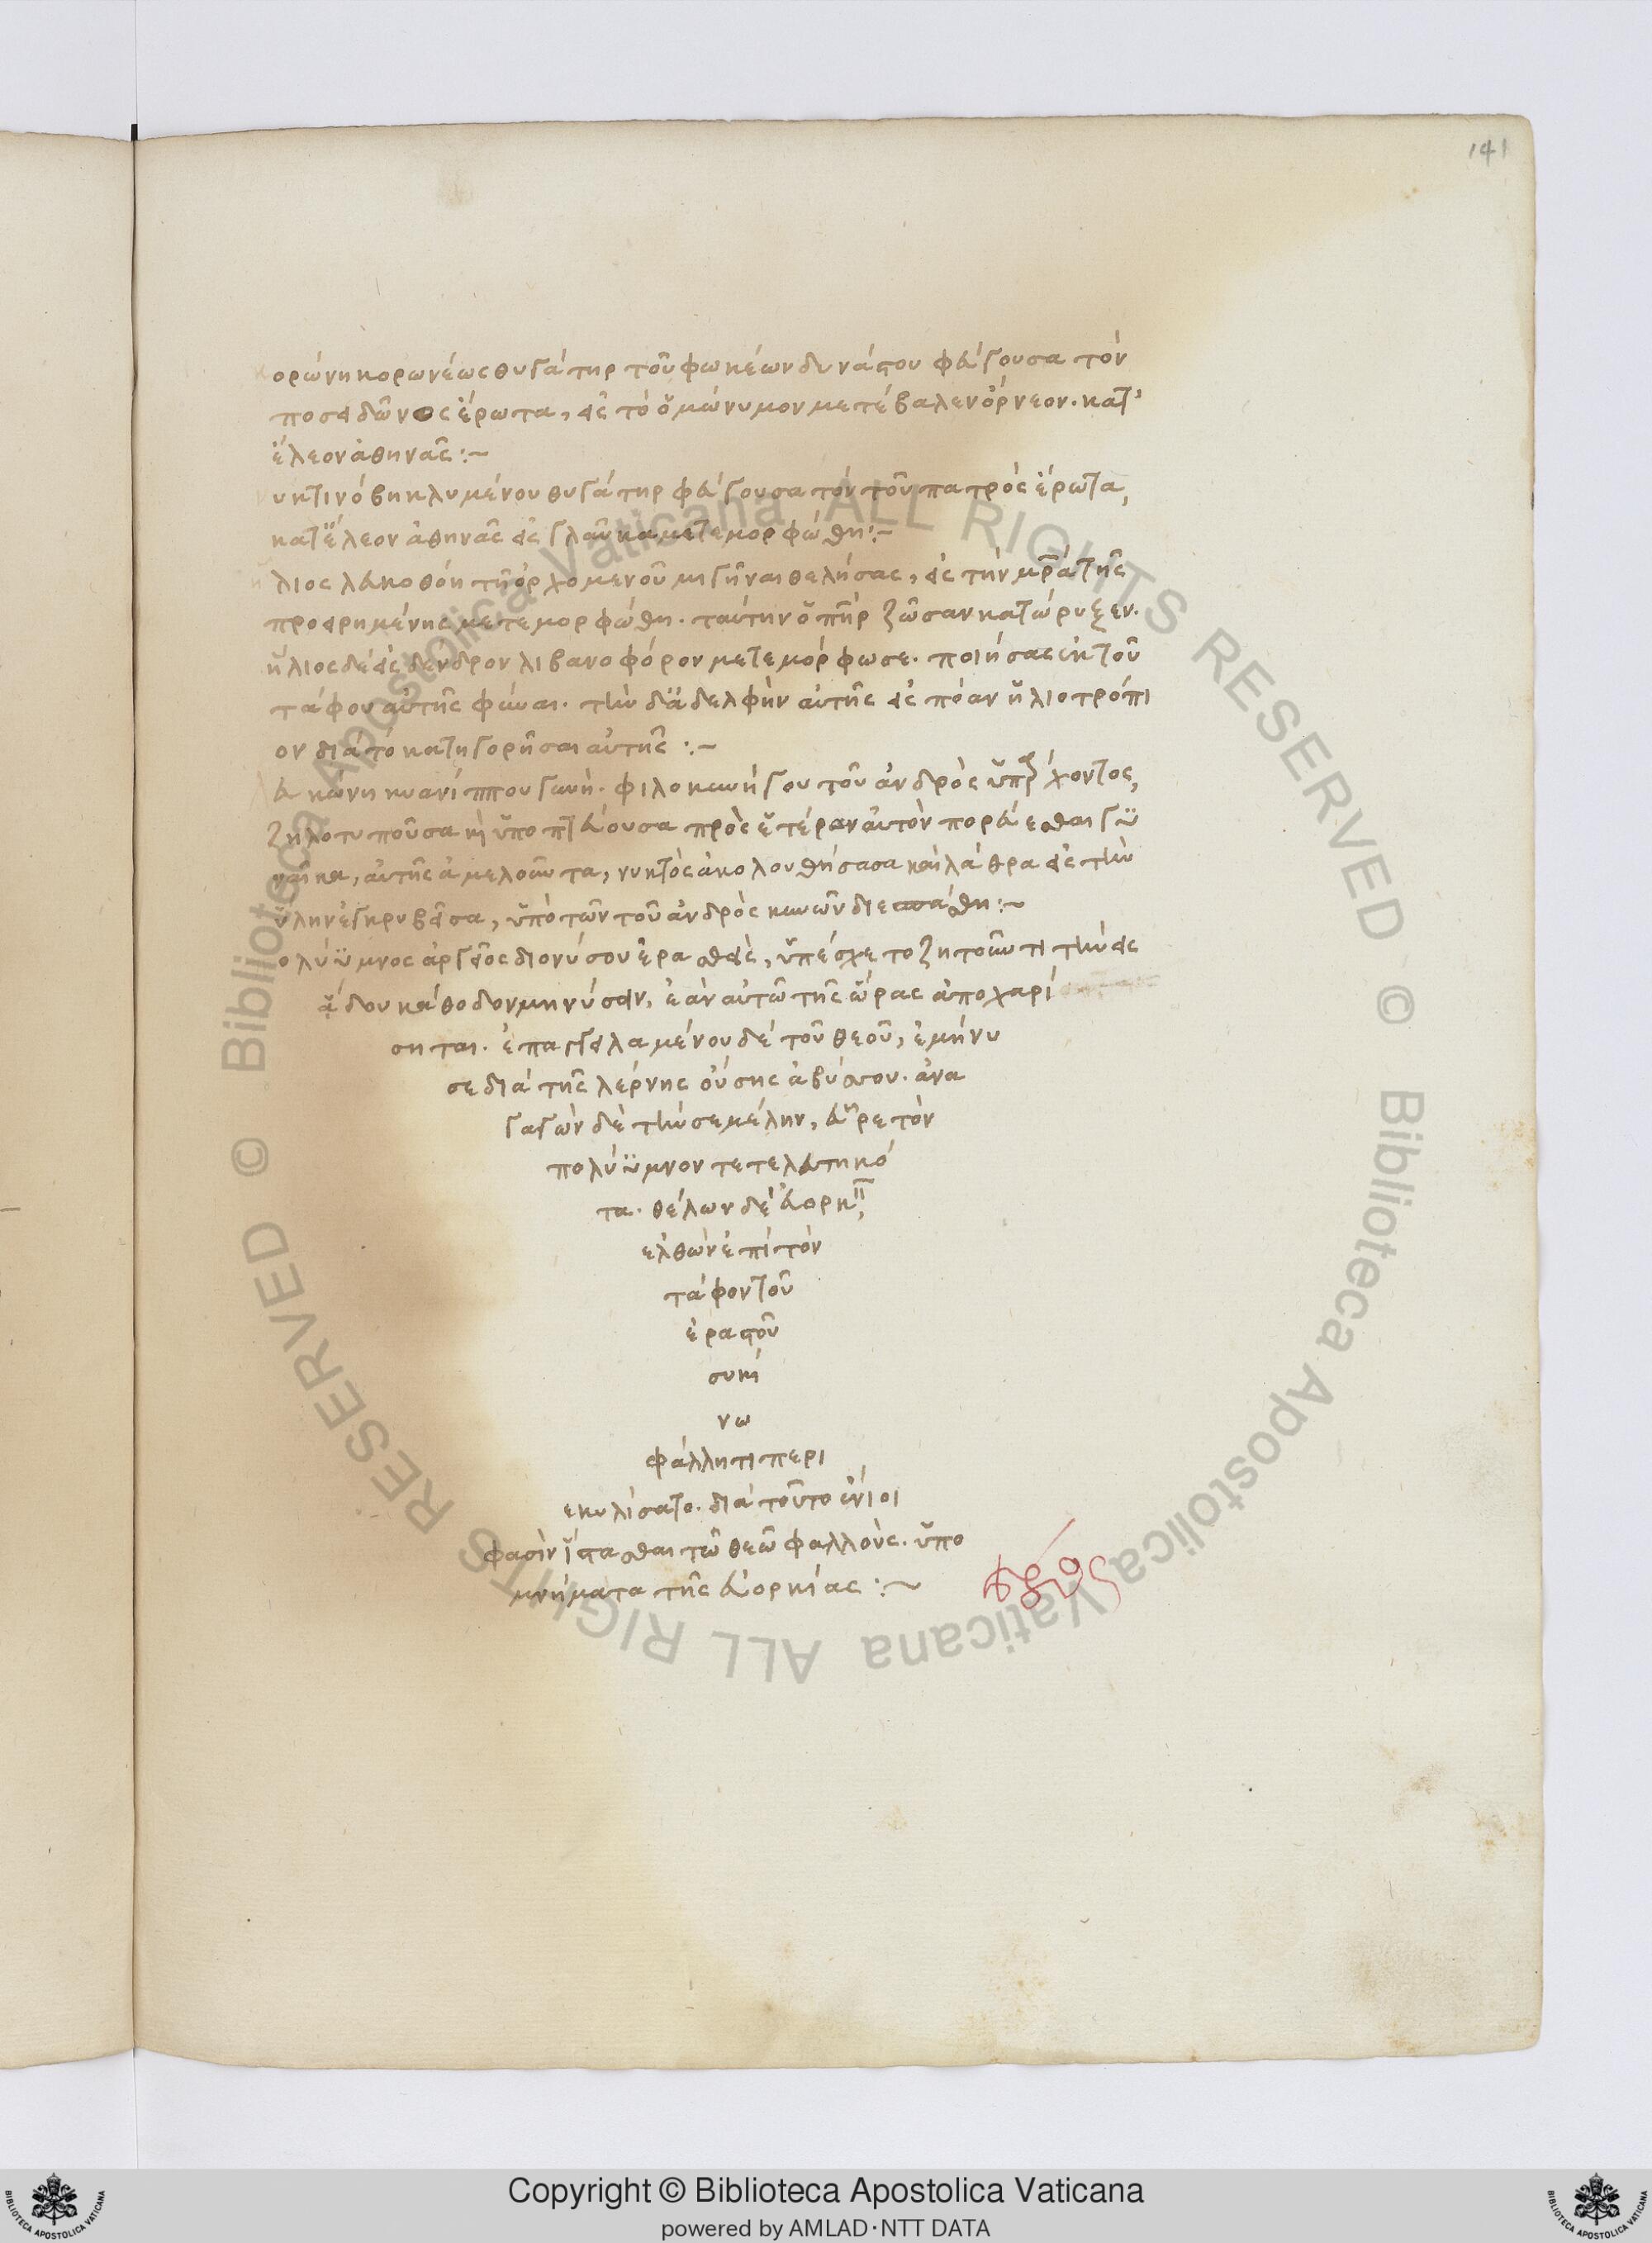 141
κορώνη κορωνέως θυγάτηρ τοῦ φωκέων δυνάστου φεύγουσα τὸν
ποσειδῶνος ἔρωτα, εἰς τὸ ὁμώνυμον μετέβαλεν ὄρνεον. κατ'
ἔλεον ἀθηνᾶς :~
νυκτινόβη κλυμένου θυγάτηρ φεύγουσα τὸν τοῦ πατρὸς ἔρωτα,
κατ ἔλεον ἀθηνᾶς εἰς γλαῦκα μετεμορφώθη :~
ἥλιος λευκοθόη τῆ ὀρχομενοῦ μιγῆναι θελήσας, εἰς τὴν μρ̅α τῆς
προειρημένης μετεμορφώθη. ταύτην ὁ πη̅ρ ζῶσαν κατώρυξεν.
ἥλιος δὲ εἰς δένδρον λιβανοφόρον μετεμόρφωσε. ποιήσας ἐκ τοῦ
τάφου αὐτῆς φῦναι. τὴν δ ἀδελφὴν αὐτῆς εἰς πόαν ἡλιοτρόπι
ον διὰ τὸ κατηγορῆσαι αὐτῆς :~
λευκώνη κυανίππου γυνή. φιλοκυνήγου τοῦ ἀνδρὸς ὑπάρχοντος,
ζηλοτυποῦσα καὶ ὑποπτεύουσα πρὸς ἑτέραν αὐτὸν πορεύεσθαι γυ
ναῖκα, αὐτῆς ἀμελοῦντα, νυκτὸς ἀκολουθήσασα καὶ λάθρα εἰς τὴν
ὕλην ἐγκρυβεῖσα, ὑπὸ τῶν τοῦ ἀνδρὸς κυνῶν διεσπάσθη :~
πολύϋμνος ἀργεῖος διονύσου ἐρασθεὶς, ὑπέσχετο ζητοῦντι τὴν εἰς
ᾅδου κάθοδον μηνύσειν, ἐὰν αὐτῶ τῆς ὥρας ἀποχαρί
σηται. ἐπαγγειλαμένου δὲ τοῦ θεοῦ, ἐμήνυ
σε διὰ τῆς λέρνης οὔσης ἀβύσσου. ἀνα
γαγὼν δὲ τὴν σεμέλην, εὗρε τὸν
πολύϋμνον τετελευτηκό
τα. θέλων δὲ εὐορκῆ,
ελθὼν ἐπὶ τὸν
τάφον τοῦ
ἐραστοῦ
συκί
νω
φάλλητι περι
εκυλίσατο. διὰ τοῦτο ἔνιοι
φασὶν ἵστασθαι τῶ θεῶ φαλλοὺς. ὑπο
μνήματα τῆς εὐορκίας :~
Copyright © Biblioteca Apostolica Vaticana
powered by AMLAD·NTT DATA
BIBLIOTECA APOSTOLICA VATICANA
BIBLIOTECA APOSTOLICA VATICANA
© Biblioteca Apostolica Vaticana ALL RIGHTS RESERVED
© Biblioteca Apostolica Vaticana ALL RIGHTS RESERVED